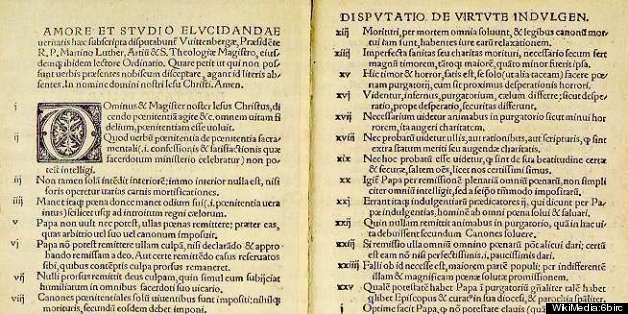 AMORE ET STVDIO ELVCIDANDAE
ueritatis hæc subscripta disputabunt̃ Vuittenbergæ, Præsidẽte
R. P. Martino Luther, Artiũ & S. Theologiæ Magistro, eius-
demq; ibidem lectore Ordinario. Quare petit ut qui non pos-
sunt uerbis præsentes nobiscum disceptare, agant id literis ab-
sentes. In nomine domini nostri Iesu Christi. Amen.
i Dominus & Magister noster Iesus Christus, di-
cendo pœnitentiã agite &c. omnem uitam fi
delium, pœnitentiam esse uoluit.
ij Quod uerbũ pœnitentia de pœnitentia sacra-
mentali (.i. confessionis & satisfactionis quæ
sacerdotum ministerio celebratur) non po-
test intelligi.
iij Non tamen solã intẽdit interiorẽ; immo interior nulla est, nisi
foris operetur uarias carnis mortificationes.
iiij Manet itaq; pœna donec manet odium sui (.i. pœnitentia uera
intus) scilicet usq; ad introitum regni cœlorum.
v Papa non uult nec potest, ullas pœnas remittere; præter eas,
quas arbitrio uel suo uel canonum imposuit.
vj Papa nõ potest remittere ullam culpã, nisi declarãdo & appro-
bando remissam a deo. Aut certe remittẽdo casus reseruatos
sibi, quibus contẽptis culpa prorsus remaneret.
vij Nulli prorsus remittit deus culpam, quin simul eum subijciat
humiliatum in omnibus sacerdoti suo uicario.
viij Canones pœnitentiales solũ uiuentibus sunt impositi; nihilq;
morituris, secundũ eosdem debet imponi.
DISPVTATIO DE VIRTVTE INDVLGEN.
xiij Morituri, per mortem omnia soluunt, & legibus canonũ mor-
tui iam sunt, habentes iure earũ relaxationem.
xiiij Imperfecta sanitas seu charitas morituri, necessario secum fert
magnũ timorem, tãtoq; maiorẽ, quãto minor fuerit ipsa.
xv Hic timor & horror, satis est, se solo (ut alia taceam) facere pœ-
nam purgatorij, cum sit proximus desperationis horrori.
xvj Videntur, infernus, purgatorium, cœlum differre; sicut despe-
ratio, prope desperatio, securitas differunt.
xvij Necessarium uidetur animabus in purgatorio sicut minui hor-
rorem, ita augeri charitatem.
xviij Nec probatũ uidetur ullis, aut rationibus, aut scripturis, q̃ sint
extra statum meriti seu augendæ charitatis.
xix Nec hoc probatũ esse uidetur, q̃ sint de sua beatitudine certæ
& securæ, saltem oẽs, licet nos certissimi simus.
xx Igit̃ Papa per remissionẽ plenariã omniũ pœnarũ, non simpli-
citer omniũ intelligit, sed a seipso tãtummodo impositarũ.
xxj Errant itaq; indulgentiarũ prædicatores ij, qui dicunt per Pa-
pæ indulgentias, hominẽ ab omni pœna solui & saluari.
xxij Quin nullam remittit animabus in purgatorio, quã in hac ui-
ta debuissent secundum Canones soluere.
xxiij Si remissio ulla omniũ omnino pœnarũ põt alicui dari; certũ
est eam nõ nisi perfectissimis, .i. paucissimis dari.
xxiiij Falli ob id necesse est, maiorem partẽ populi; per indifferentẽ
illam & magnificam pœnæ solutæ promissionem.
xxv Qualẽ potestatẽ habet Papa ĩ purgatoriũ gñaliter talẽ habet
quilibet Episcopus & curatus in sua diocesi, & parochia spãliter.
i Optime facit Papa, q̃ nõ potestate clauis (quam
WikiMedia:6birc